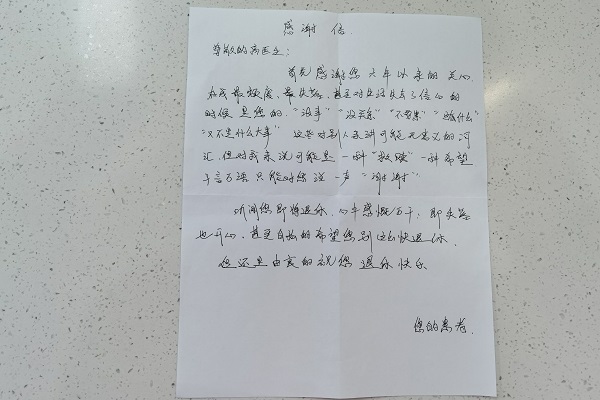 感谢信
尊敬的高医生:
首先感谢您六年以来的关心
在我最疲惫、最失落、甚至对生活失去了信心的
时候是您的,"没事""没关系""不要紧""怕什么"
"又不是什么大事"这些对别人来讲可能无意义的词
汇,但对我来说可能是一种"救赎"一种希望
千言万语只能对您说一声"谢谢"
听闻您即将退休,心中感慨万千,即失落
也开心,甚至自私的希望您别这么快退休,
但还是由衷的祝您退休快乐
您的患者.